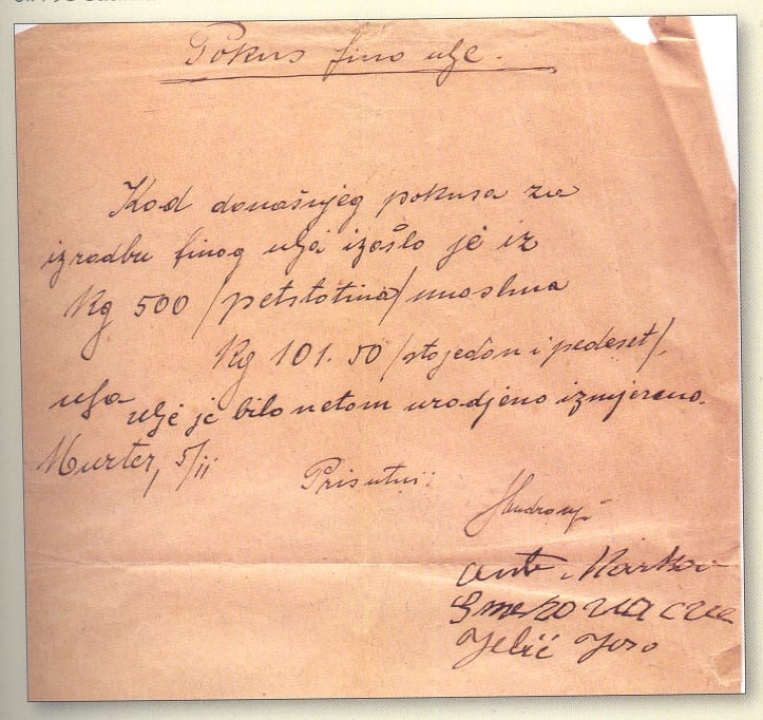 Pokus fino ulje.
Kod današnjeg pokusa za
izradbu finog ulja izašlo je iz
Kg 500 /petstotina/ mošena
Kg 101.50 /stojedan i pedeset/
ulja ulje je bilo netom urodjeno izmjereno.
Murter, 5/ii
Prisutni:
Ante Markov
Jelić Joso